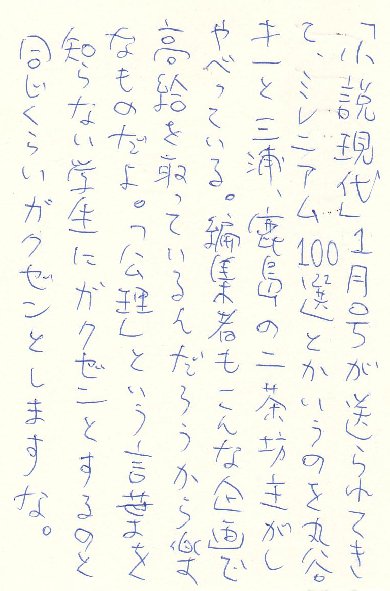 「小説現代」1月号が送られてき
て、ミレニアム100選とかいうのを丸谷
才一と三浦、鹿島の二茶坊主がし
ゃべっている。編集者もこんな企画で
高給を取っているんだろうから楽
なものだよ。「公理」という言葉を
知らない学生にガクゼンとするのと
同じくらいガクゼンとしますな。